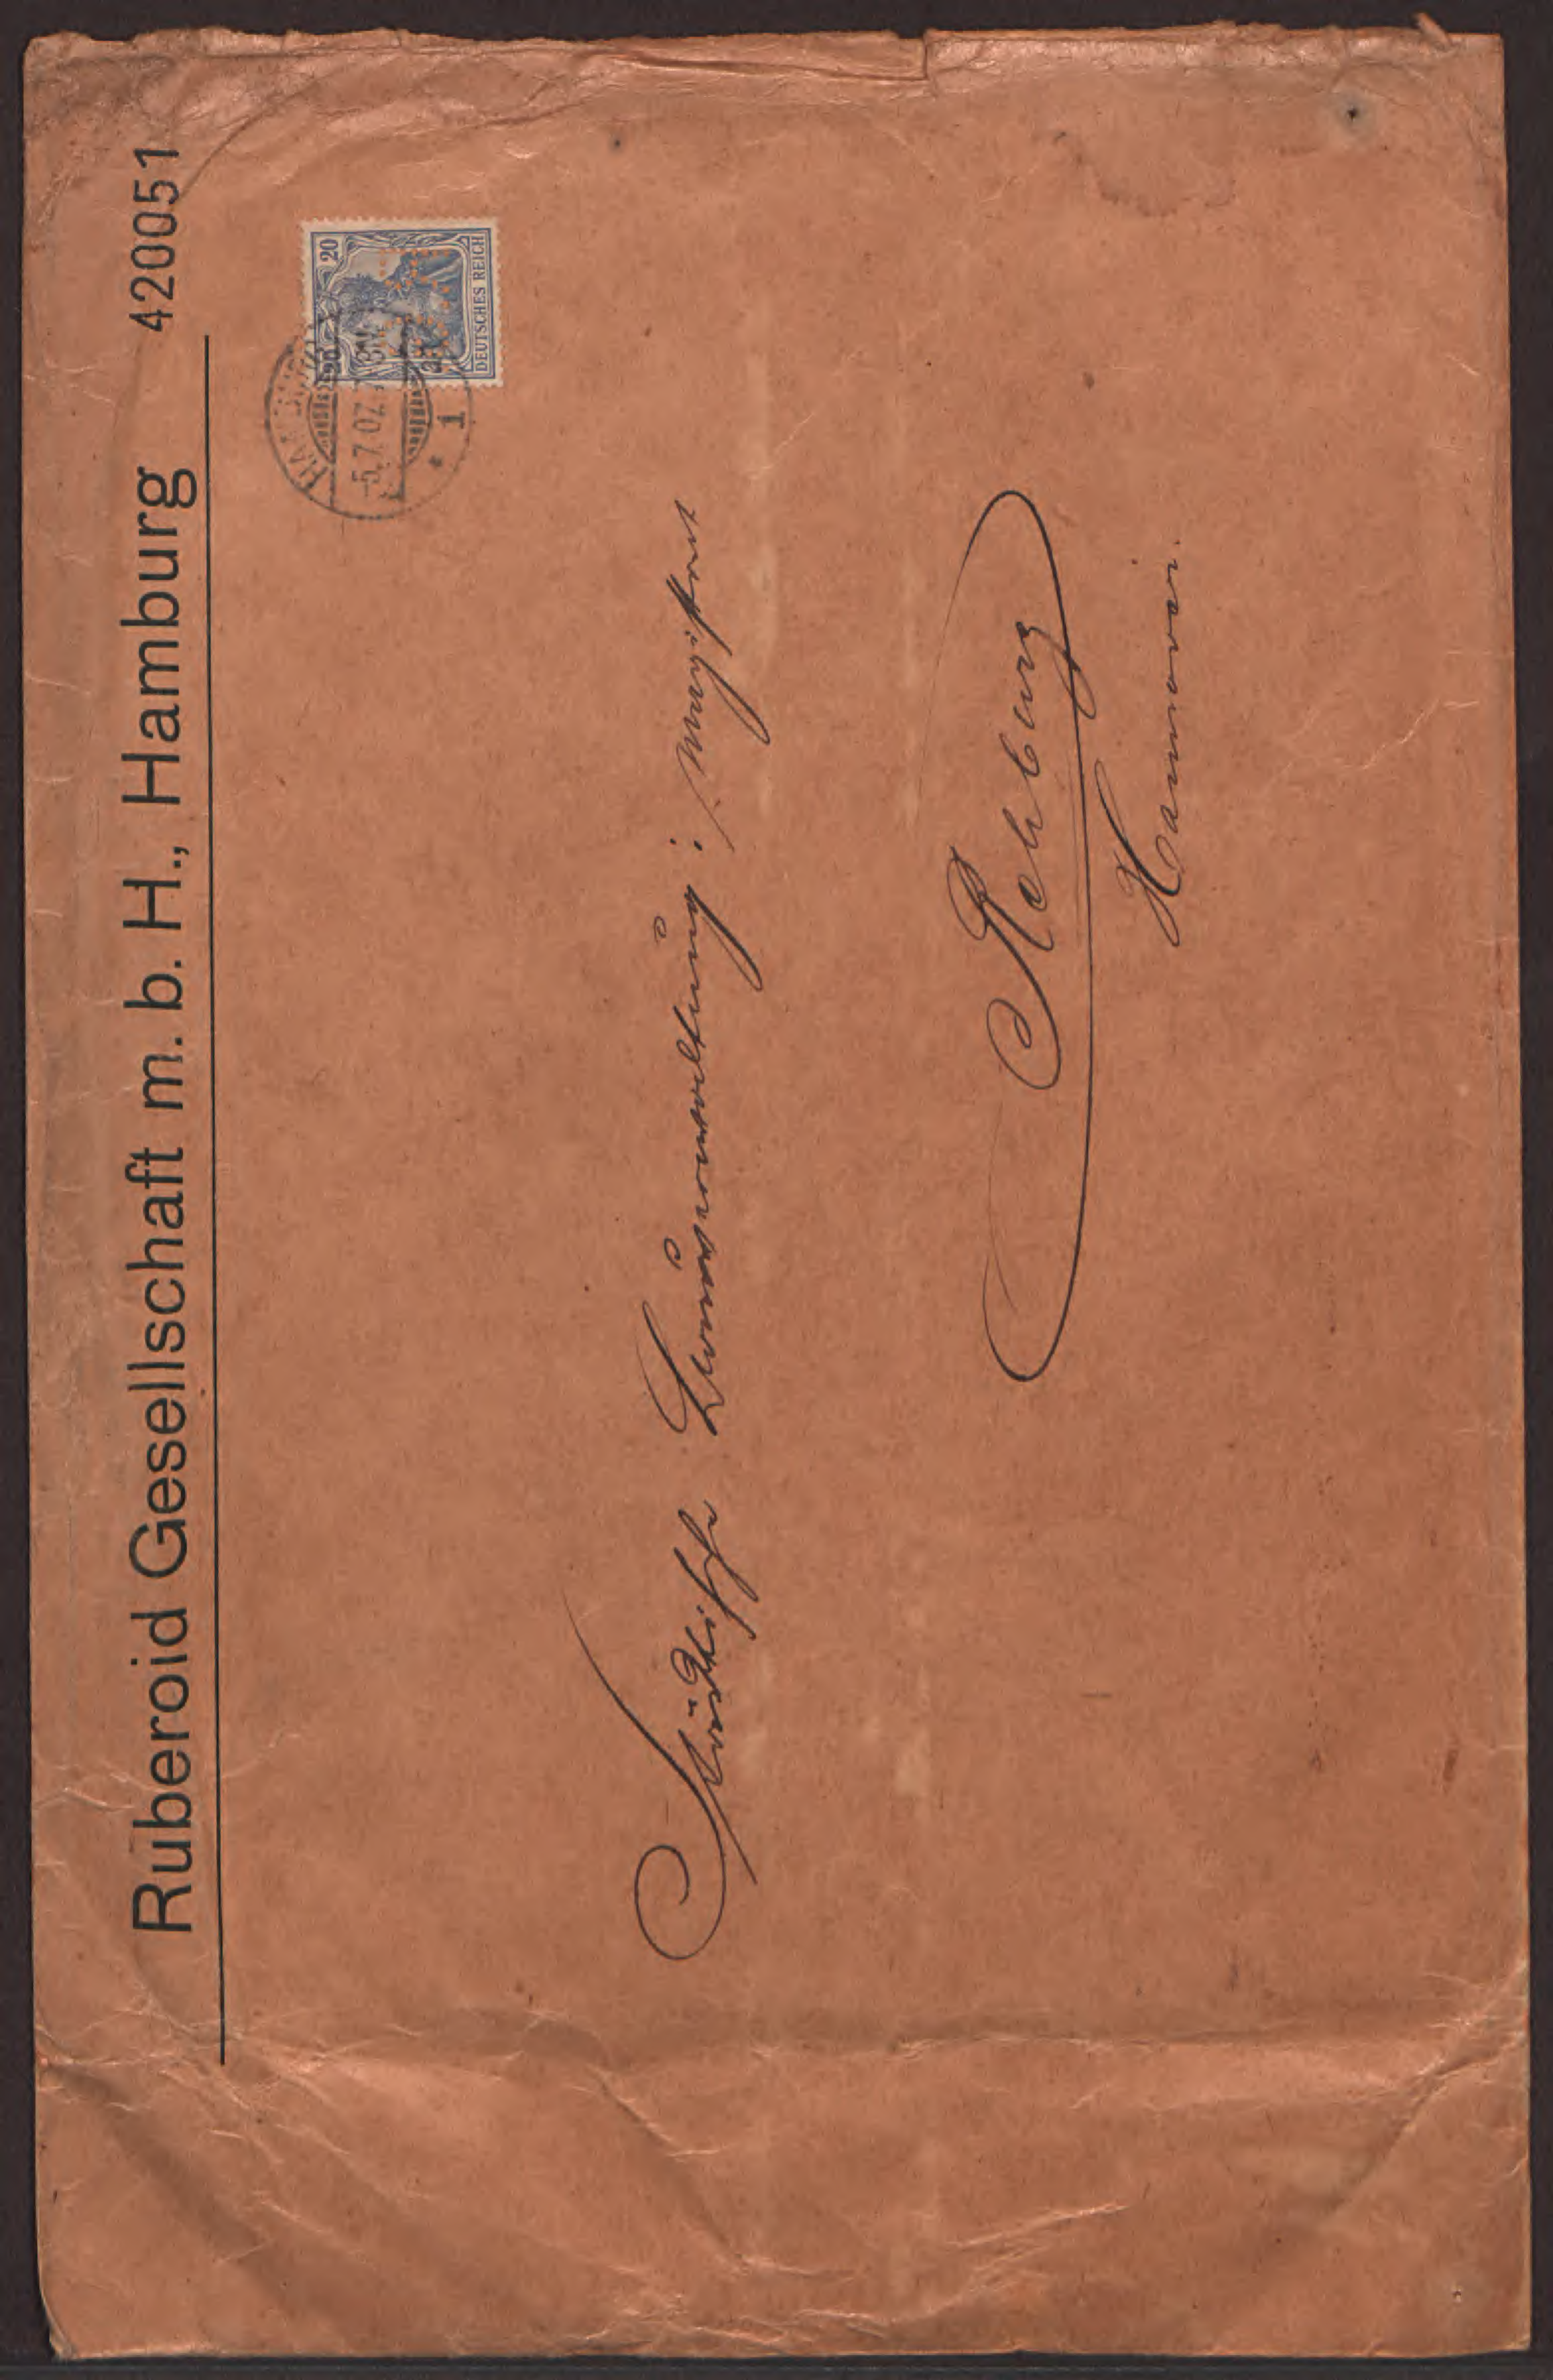 Ruberoid Gesellschaft m. b. H., Hamburg 420051
20
DEUTSCHES REICH
HAMBURG
-5.7.07. 8N
* 1
Städtische Bauverwaltung; Magistrat
Rehburg
Hannover.